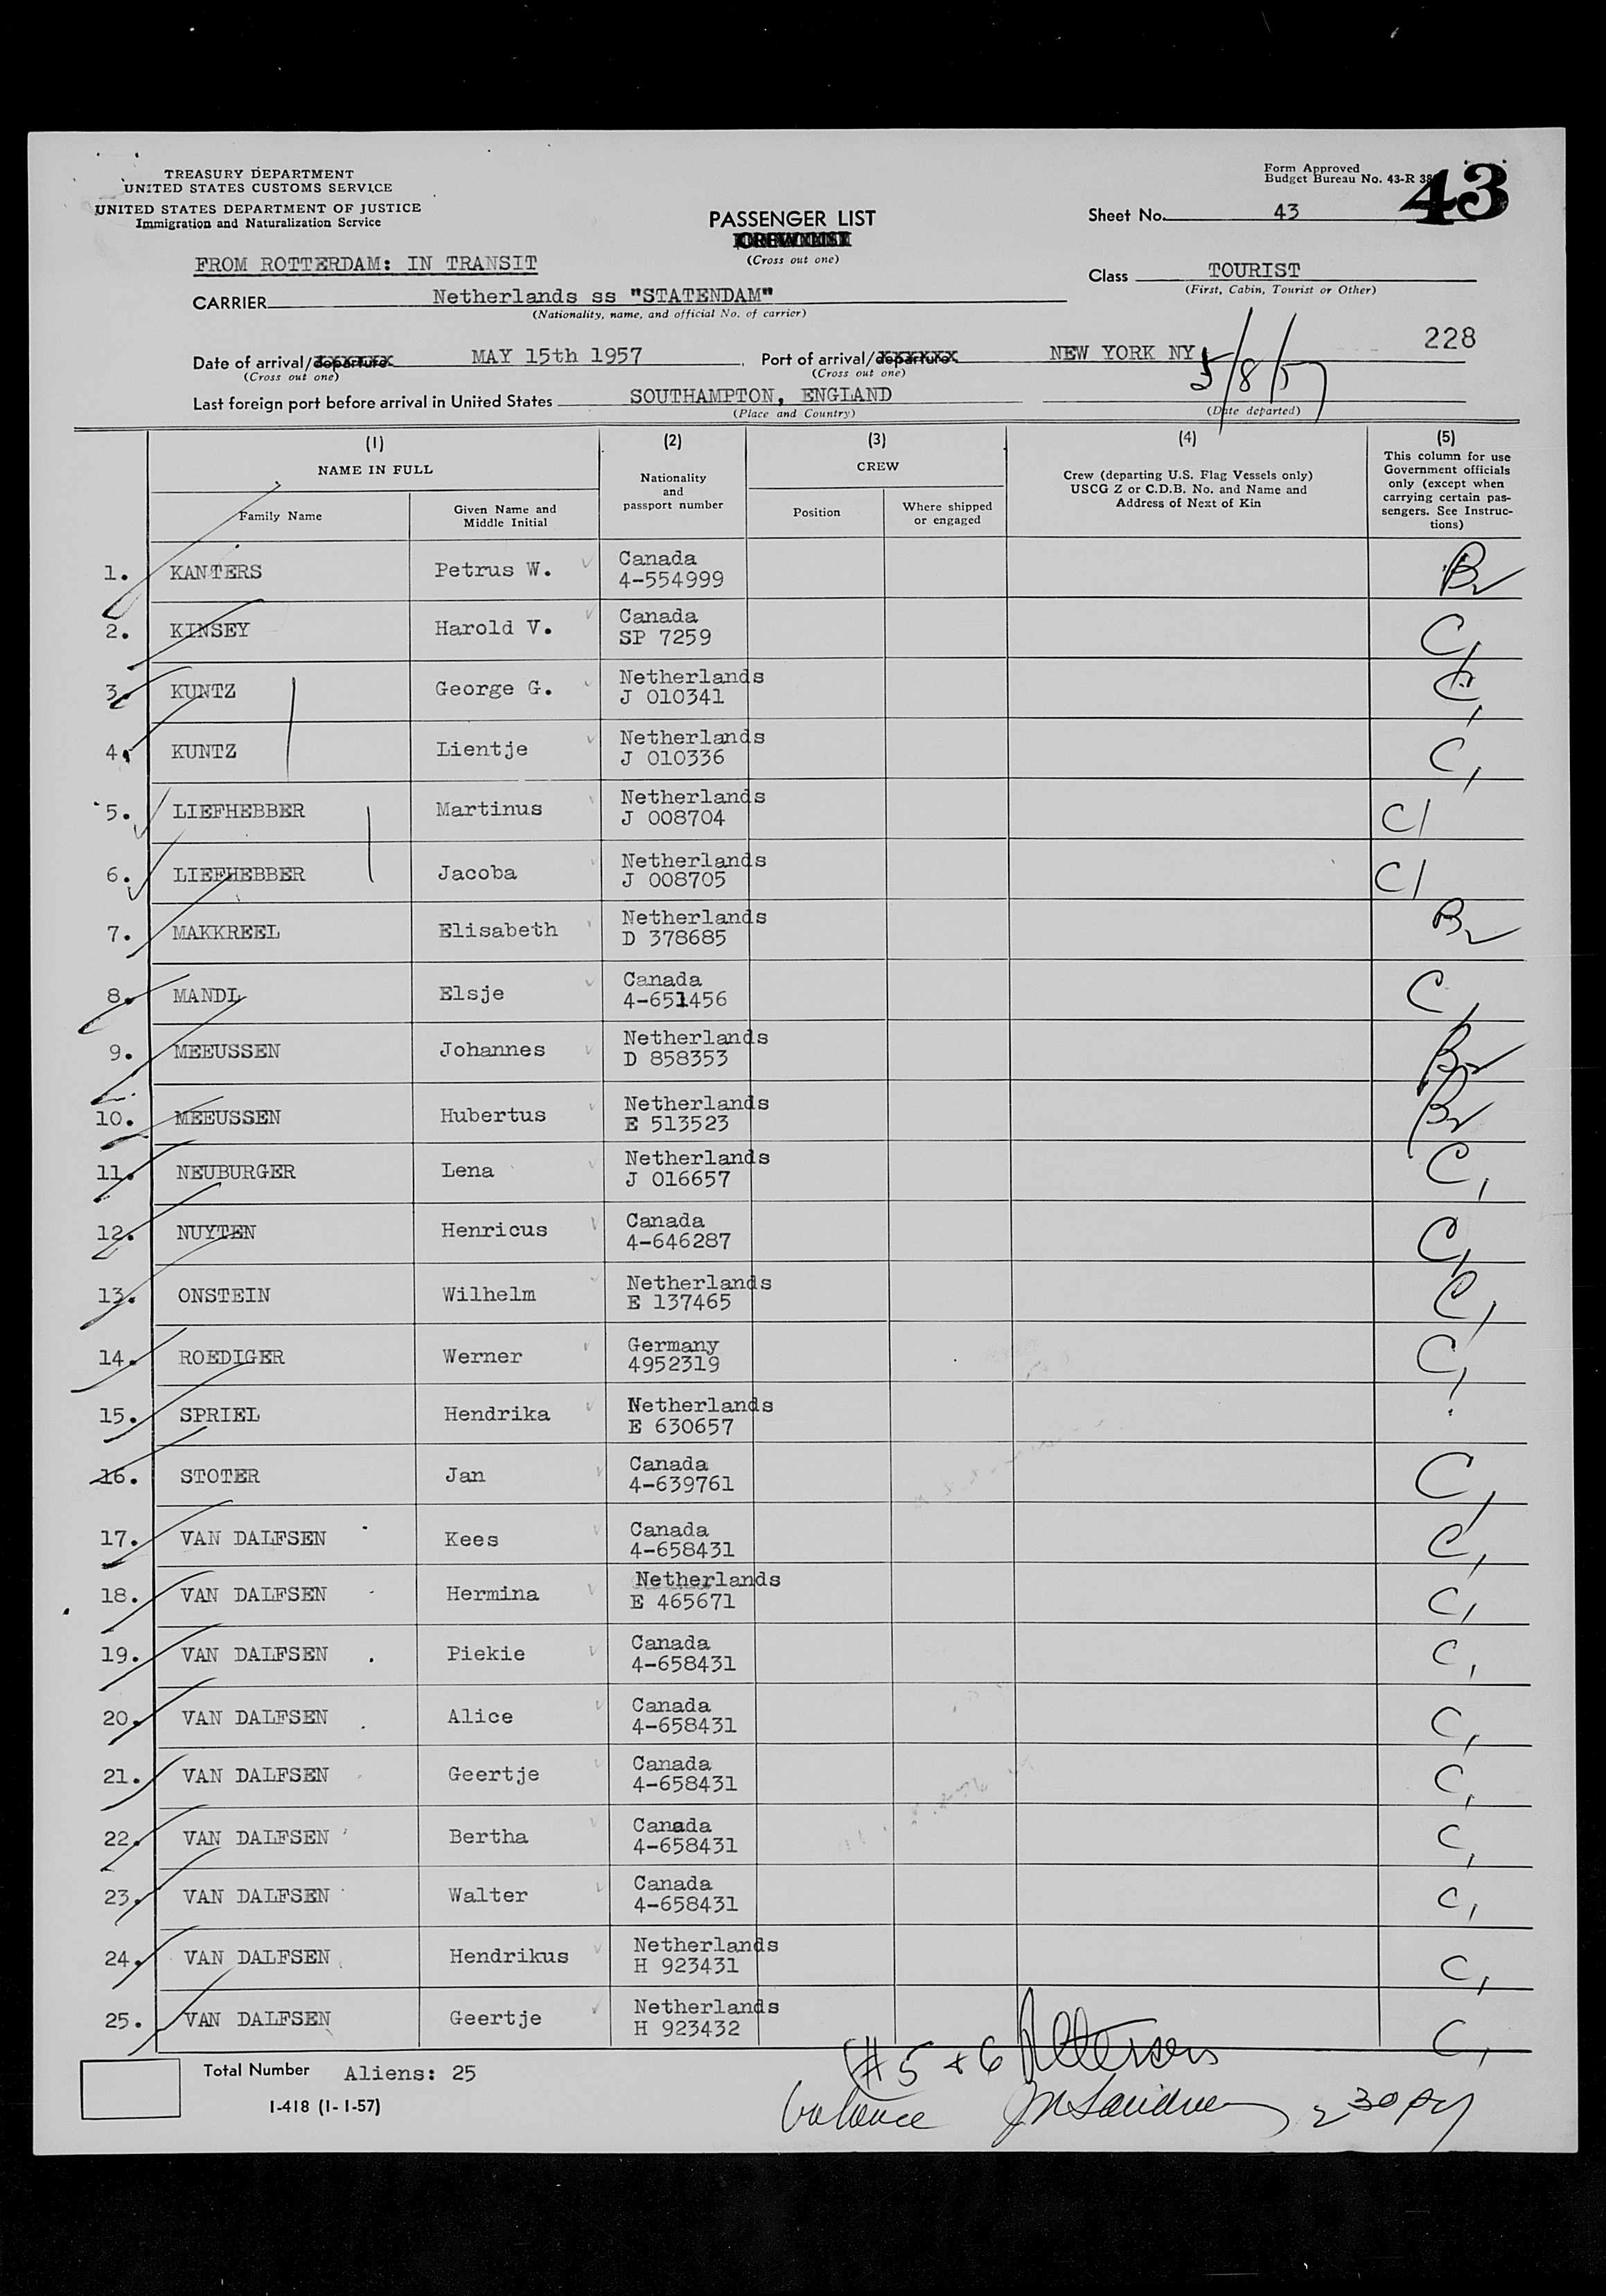 TREASURY DEPARTMENT
UNITED STATES CUSTOMS SERVICE
UNITED STATES DEPARTMENT OF JUSTICE
Immigration and Naturalization Service
Form Approved
Budget Bureau No. 43-R
43
PASSENGER LIST
CREW LIST
(Cross out one)
Sheet No. 43
FROM ROTTERDAM: IN TRANSIT
Class TOURIST
(First, Cabin, Tourist or Other)
CARRIER Netherlands ss "STATENDAM"
(Nationality, name, and official No. of carrier)
228
Date of arrival/departure MAY 15th 1957 Port of arrival/departure NEW YORK NY
(Cross out one) (Cross out one)
5/8/57
Last foreign port before arrival in United States SOUTHAMPTON, ENGLAND
(Place and Country) (Date departed)
(1) (2) (3) (4) (5)
NAME IN FULL
Family Name
Given Name and Middle Initial
Nationality and passport number
CREW
Position
Where shipped or engaged
Crew (departing U.S. Flag Vessels only)
USCG Z or C.D.B. No. and Name and
Address of Next of Kin
This column for use
Government officials
only (except when
carrying certain pas-
sengers. See Instruc-
tions)
1. KANTERS Petrus W. Canada 4-554999
2. KINSEY Harold V. Canada SP 7259 C
3. KUNTZ George G. Netherlands J 010341 C
4. KUNTZ Lientje Netherlands J 010336 C
5. LIEFHEBBER Martinus Netherlands J 008704 C/
6. LIEFHEBBER Jacoba Netherlands J 008705 C/
7. MAKKREEL Elisabeth Netherlands D 378685
8. MANDL Elsje Canada 4-651456 C
9. MEEUSSEN Johannes Netherlands D 858353
10. MEEUSSEN Hubertus Netherlands E 513523
11. NEUBURGER Lena Netherlands J 016657 C
12. NUYTEN Henricus Canada 4-646287 C
13. ONSTEIN Wilhelm Netherlands E 137465 C
14. ROEDIGER Werner Germany 4952319 C
15. SPRIEL Hendrika Netherlands E 630657
16. STOTER Jan Canada 4-639761 C
17. VAN DALFSEN Kees Canada 4-658431 C
18. VAN DALFSEN Hermina Netherlands E 465671 C
19. VAN DALFSEN Piekie Canada 4-658431 C
20. VAN DALFSEN Alice Canada 4-658431 C
21. VAN DALFSEN Geertje Canada 4-658431 C
22. VAN DALFSEN Bertha Canada 4-658431 C
23. VAN DALFSEN Walter Canada 4-658431 C
24. VAN DALFSEN Hendrikus Netherlands H 923431 C
25. VAN DALFSEN Geertje Netherlands H 923432 C
#5 + 6
Total Number Aliens: 25
balance
I-418 (1-1-57)